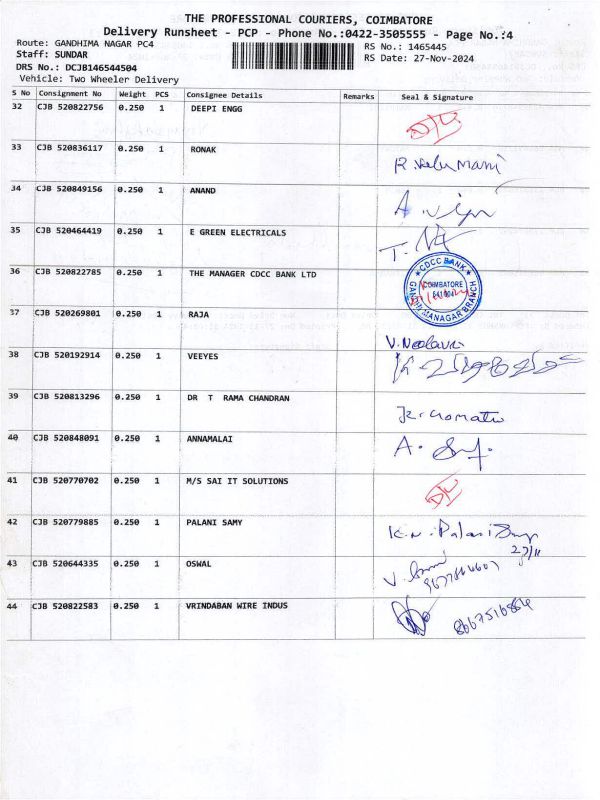 THE PROFESSIONAL COURIERS, COIMBATORE
Delivery Runsheet - PCP - Phone No.:0422-3505555 - Page No.:4
Route: GANDHIMA NAGAR PC4
RS No.: 1465445
Staff: SUNDAR
RS Date: 27-Nov-2024
DRS No.: DCJB146544504
Vehicle: Two Wheeler Delivery
S No Consignment No Weight PCS Consignee Details Remarks Seal & Signature
32 CJB 520822756 0.250 1 DEEPI ENGG D/L
33 CJB 520836117 0.250 1 RONAK
34 CJB 520849156 0.250 1 ANAND
35 CJB 520464419 0.250 1 E GREEN ELECTRICALS
36 CJB 520822785 0.250 1 THE MANAGER CDCC BANK LTD CDCC BANK COIMBATORE GANDHI MANAGAR BRANCH
37 CJB 520269801 0.250 1 RAJA
38 CJB 520192914 0.250 1 VEEYES
39 CJB 520813296 0.250 1 DR T RAMA CHANDRAN
40 CJB 520848091 0.250 1 ANNAMALAI
41 CJB 520770702 0.250 1 M/S SAI IT SOLUTIONS D/L
42 CJB 520779885 0.250 1 PALANI SAMY
27/11
43 CJB 520644335 0.250 1 OSWAL
44 CJB 520822583 0.250 1 VRINDABAN WIRE INDUS